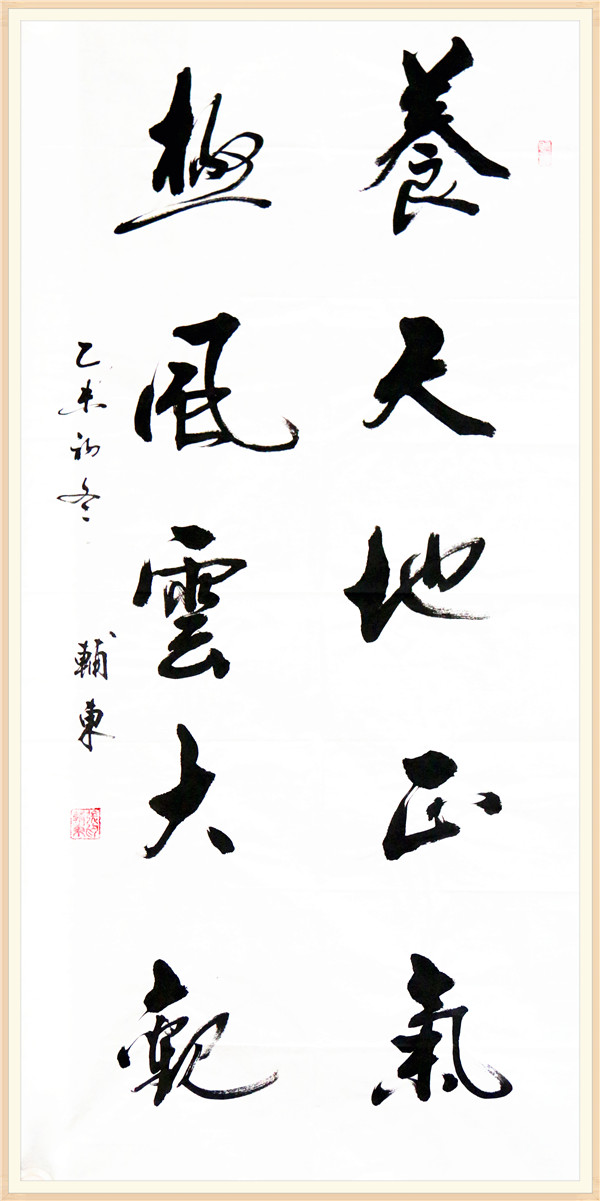 養天地正氣
極風雲大觀
乙未初冬
輔東